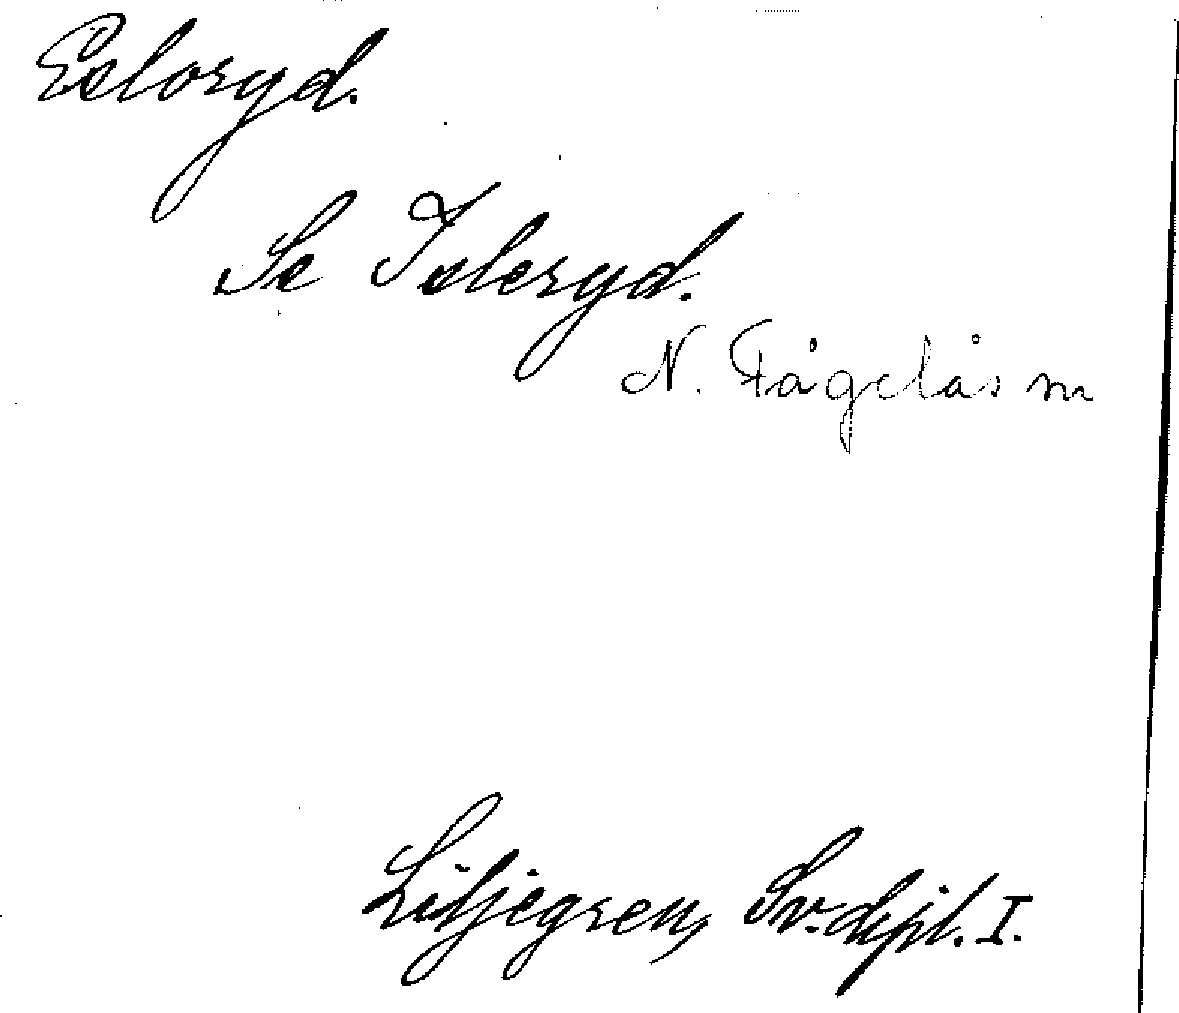 Esloryd.
Se Isleryd.
N. Fågelås sn
Liljegren, Sv. dipl. I.